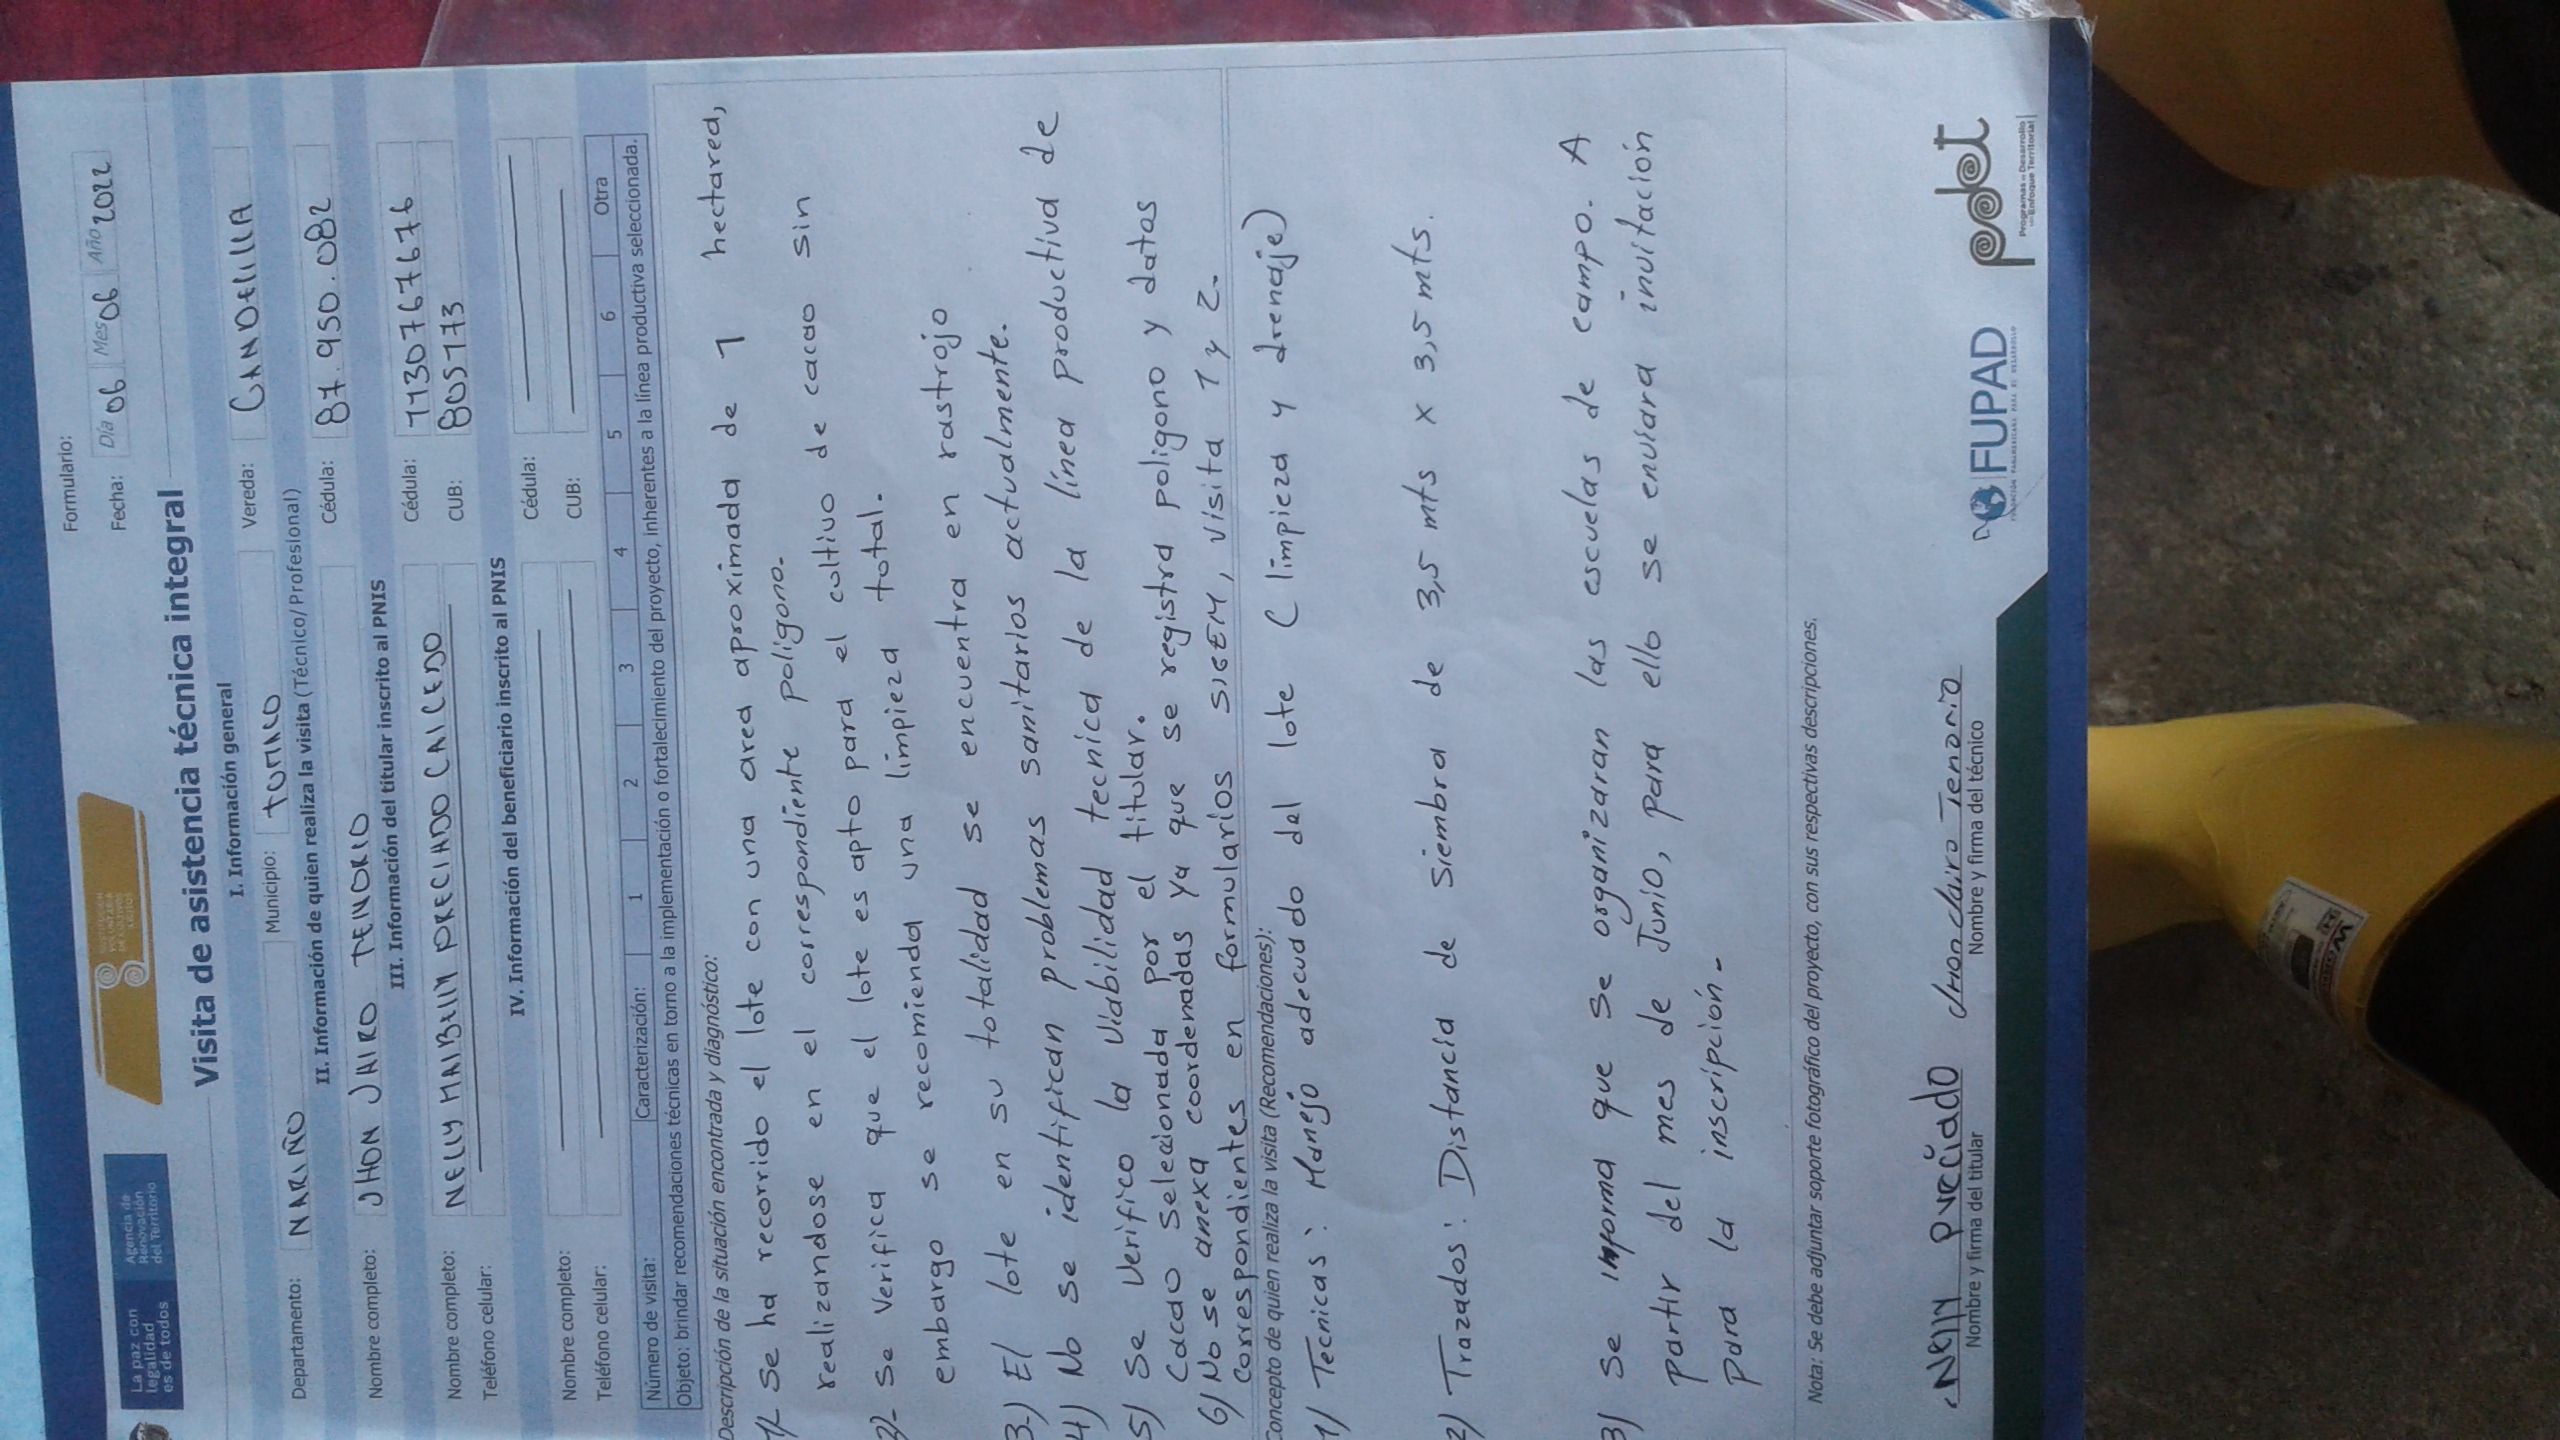 La paz con
legalidad
es de todos
Agencia de
Renovación
del Territorio
SUSTITUCIÓN
VOLUNTARIA
DE CULTIVOS
ILÍCITOS
Formulario:
Fecha: Día 06 Mes 06 Año 2022
Visita de asistencia técnica integral
I. Información general
Departamento: NARIÑO Municipio: TUMACO Vereda: CANDELILLA
II. Información de quien realiza la visita (Técnico/Profesional)
Nombre completo: JHON JAIRO TENORIO Cédula: 87.950.082
III. Información del titular inscrito al PNIS
Nombre completo: NELLY MAIBELLY PRECIADO CAICEDO Cédula: 1130767676
Teléfono celular: CUB: 805173
IV. Información del beneficiario inscrito al PNIS
Nombre completo: Cédula:
Teléfono celular: CUB:
Número de visita: Caracterización: 1 2 3 4 5 6 Otra
Objeto: brindar recomendaciones técnicas en torno a la implementación o fortalecimiento del proyecto, inherentes a la línea productiva seleccionada.
Descripción de la situación encontrada y diagnóstico:
1)- Se ha recorrido el lote con una area aproximada de 1 hectarea,
realizandose en el correspondiente poligono.
2)- Se Verifica que el lote es apto para el cultivo de cacao sin
embargo se recomienda una limpieza total.
3-) El lote en su totalidad se encuentra en rastrojo
4) No se identifican problemas sanitarios actualmente.
5) Se Verifico la Viabilidad tecnica de la línea productiva de
Cacao seleccionada por el titular.
6) No se anexa coordenadas ya que se registra poligono y datos
correspondientes en formularios SISEM, Visita 1 y 2.
Concepto de quien realiza la visita (Recomendaciones):
1) Tecnicas: Manejo adecuado del lote (limpieza y drenaje)
2) Trazados: Distancia de Siembra de 3,5 mts x 3,5 mts.
3) Se informa que se organizaran las escuelas de campo. A
partir del mes de Junio, para ello se enviara invitación
para la inscripción.
Nota: Se debe adjuntar soporte fotográfico del proyecto, con sus respectivas descripciones.
Nelly preciado Jhon Jairo Tenorio
Nombre y firma del titular Nombre y firma del técnico
FUPAD
FUNDACIÓN PANAMERICANA PARA EL DESARROLLO
pdet
Programas de Desarrollo
con Enfoque Territorial